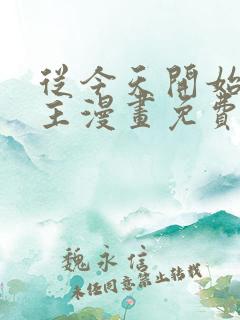 從今天開始
王漫畫免費
魏永信
未經同意禁止轉載